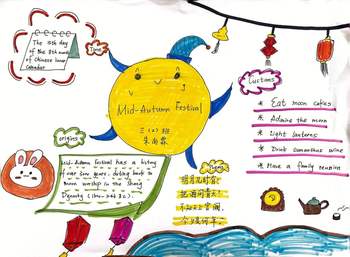 The 15th day
of the 8th month
of Chinese lunar
Calendar
Time
Mid-Autumn Festival
三(2)班
Customs
* Eat moon cakes
* Admire the moon
* Light lanterns
* Drink osmanthus wine
* Have a family reunion
origins
Mid-Autumn Festival has a history
of over 3000 years, dating back to
moon worship in the Shang
Dynasty
明月几时有,
把酒问青天。
不知天上宫阙,
今夕是何年。